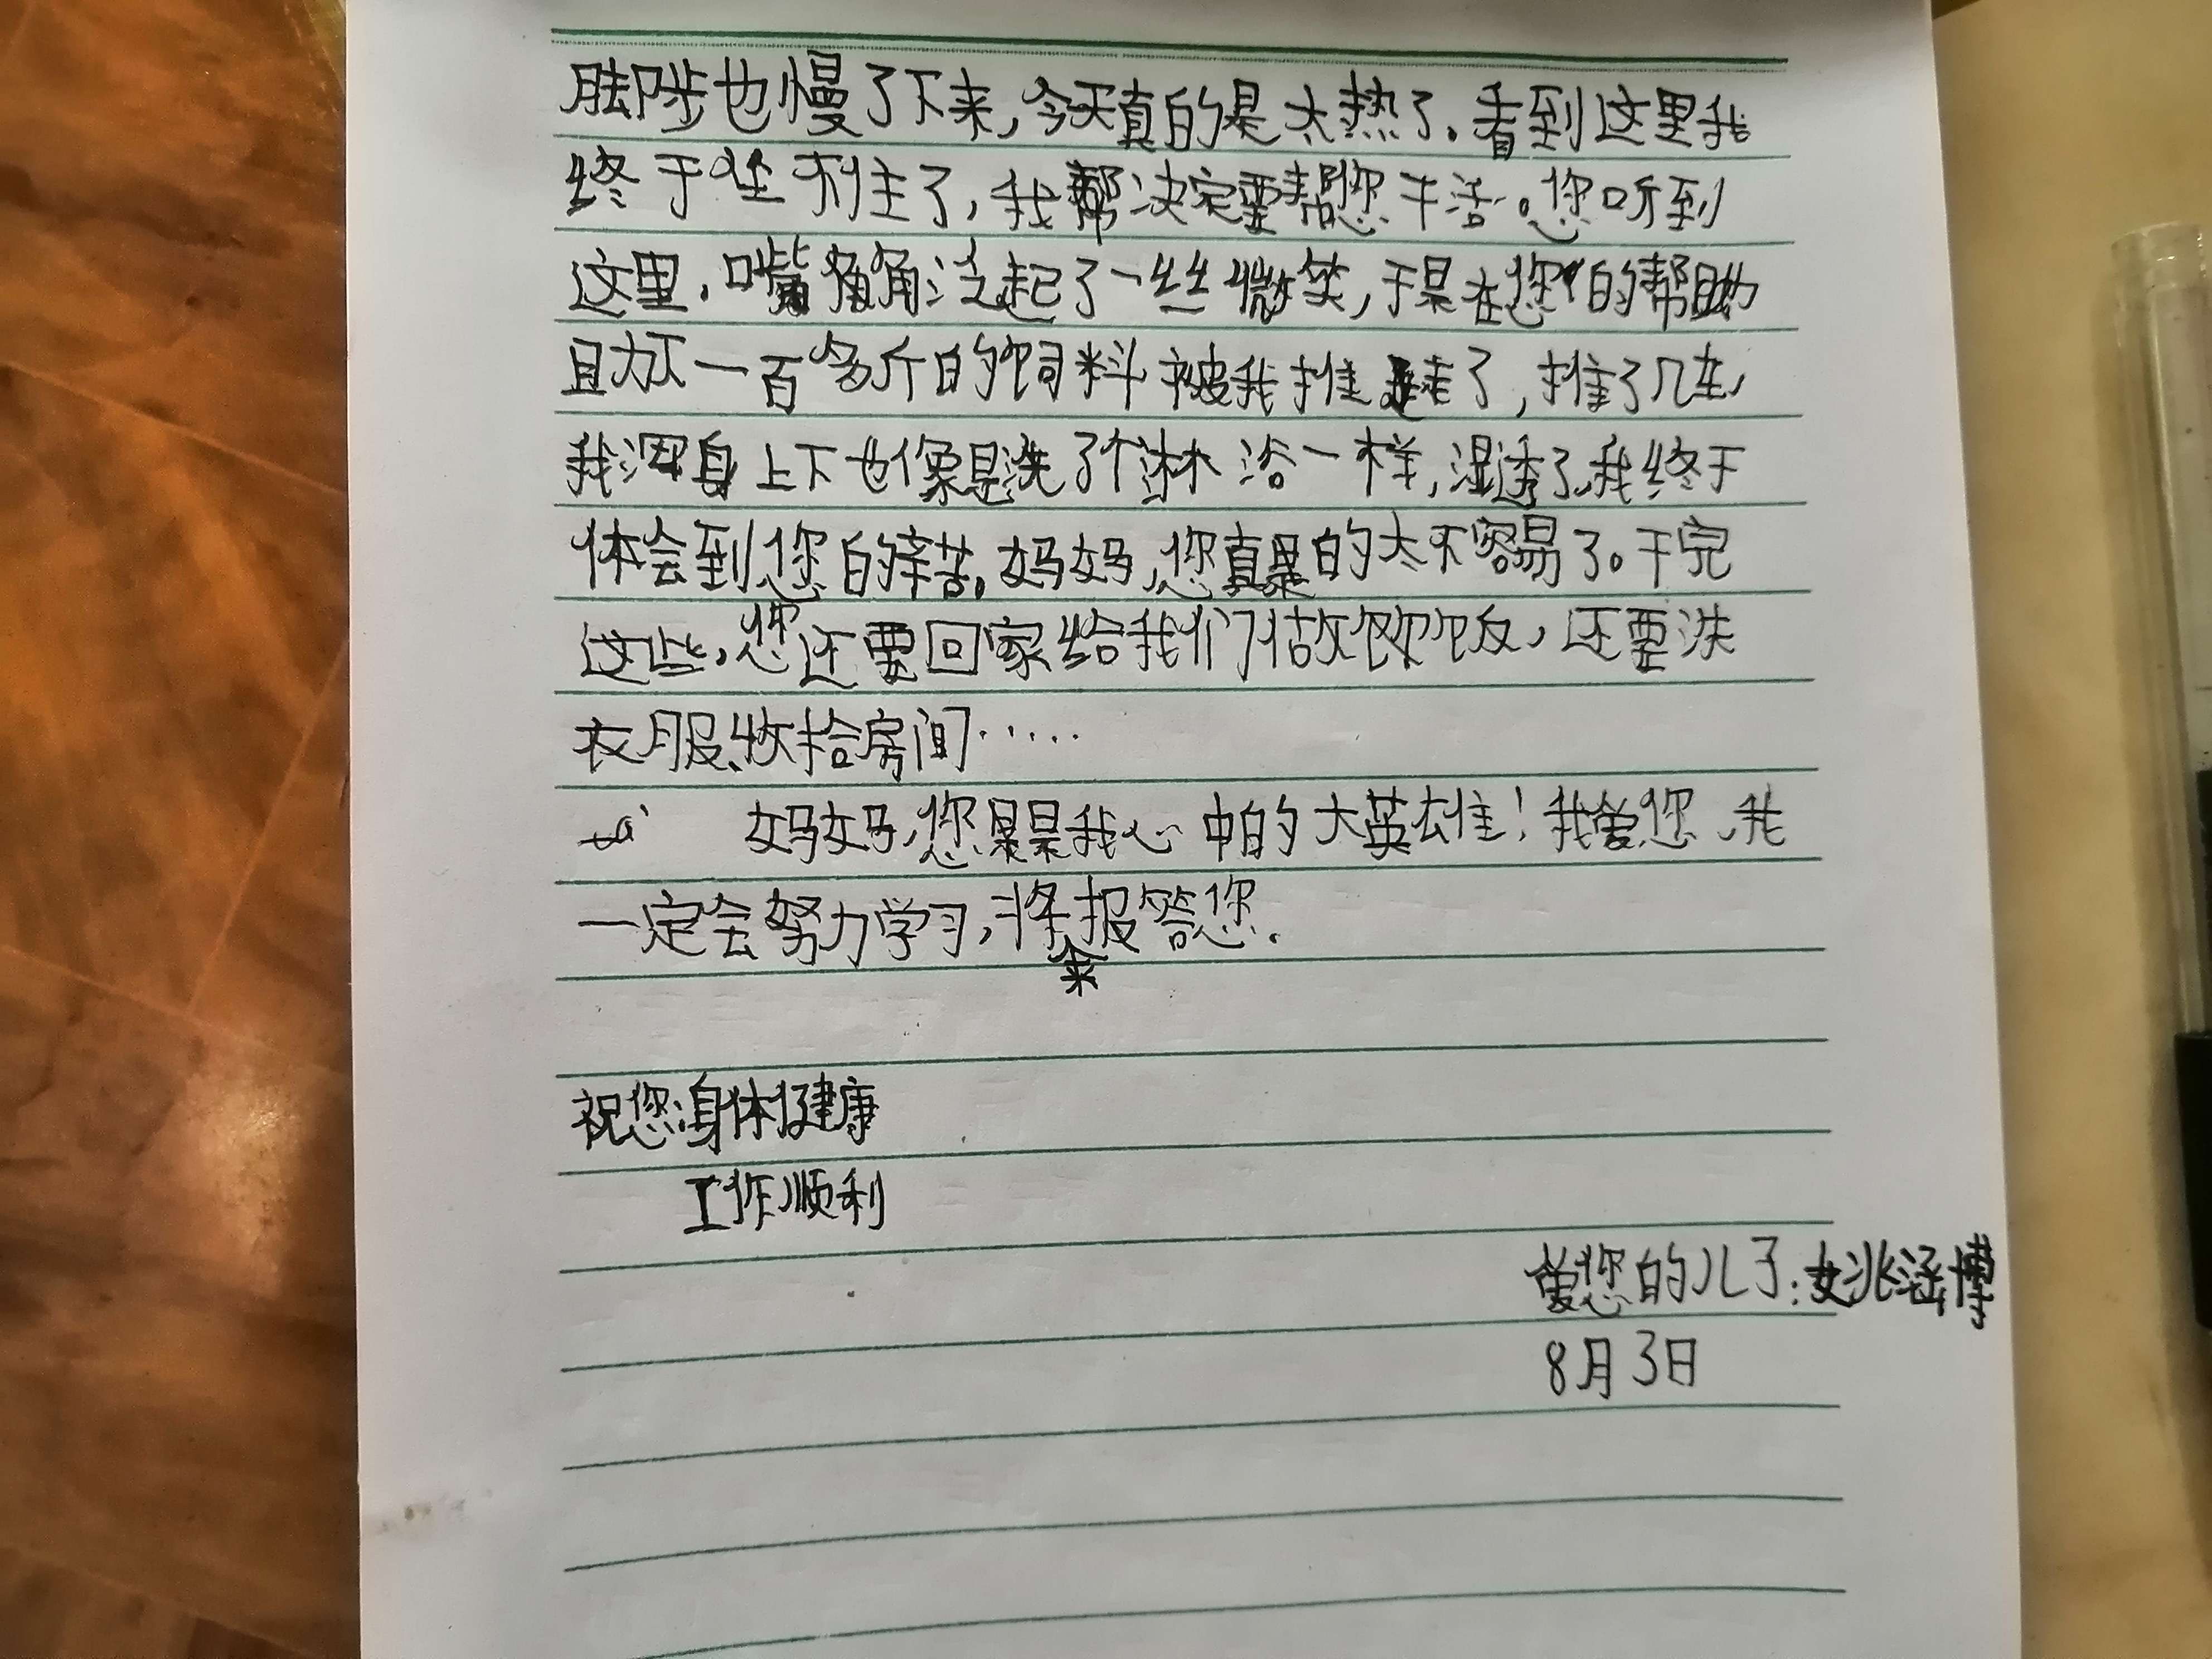 脚步也慢了下来，今天真的是太热了。看到这里我
终于坐不住了，我帮决定要帮您干活。您听到
这里，嘴角泛起了一丝微笑，于是在您的帮助
下一百多斤的饲料被我推走了，推了几车，
我浑身上下也像是洗了个淋浴一样，湿透了，我终于
体会到您的辛苦。妈妈，您真是的太不容易了。干完
这些，您还要回家给我们做饭，还要洗
衣服、收拾房间……
妈妈，您是我心中的大英雄！我爱您，我
一定会努力学习，将来报答您。
祝您：身体健康
工作顺利
爱您的儿子：姚涵博
8月3日